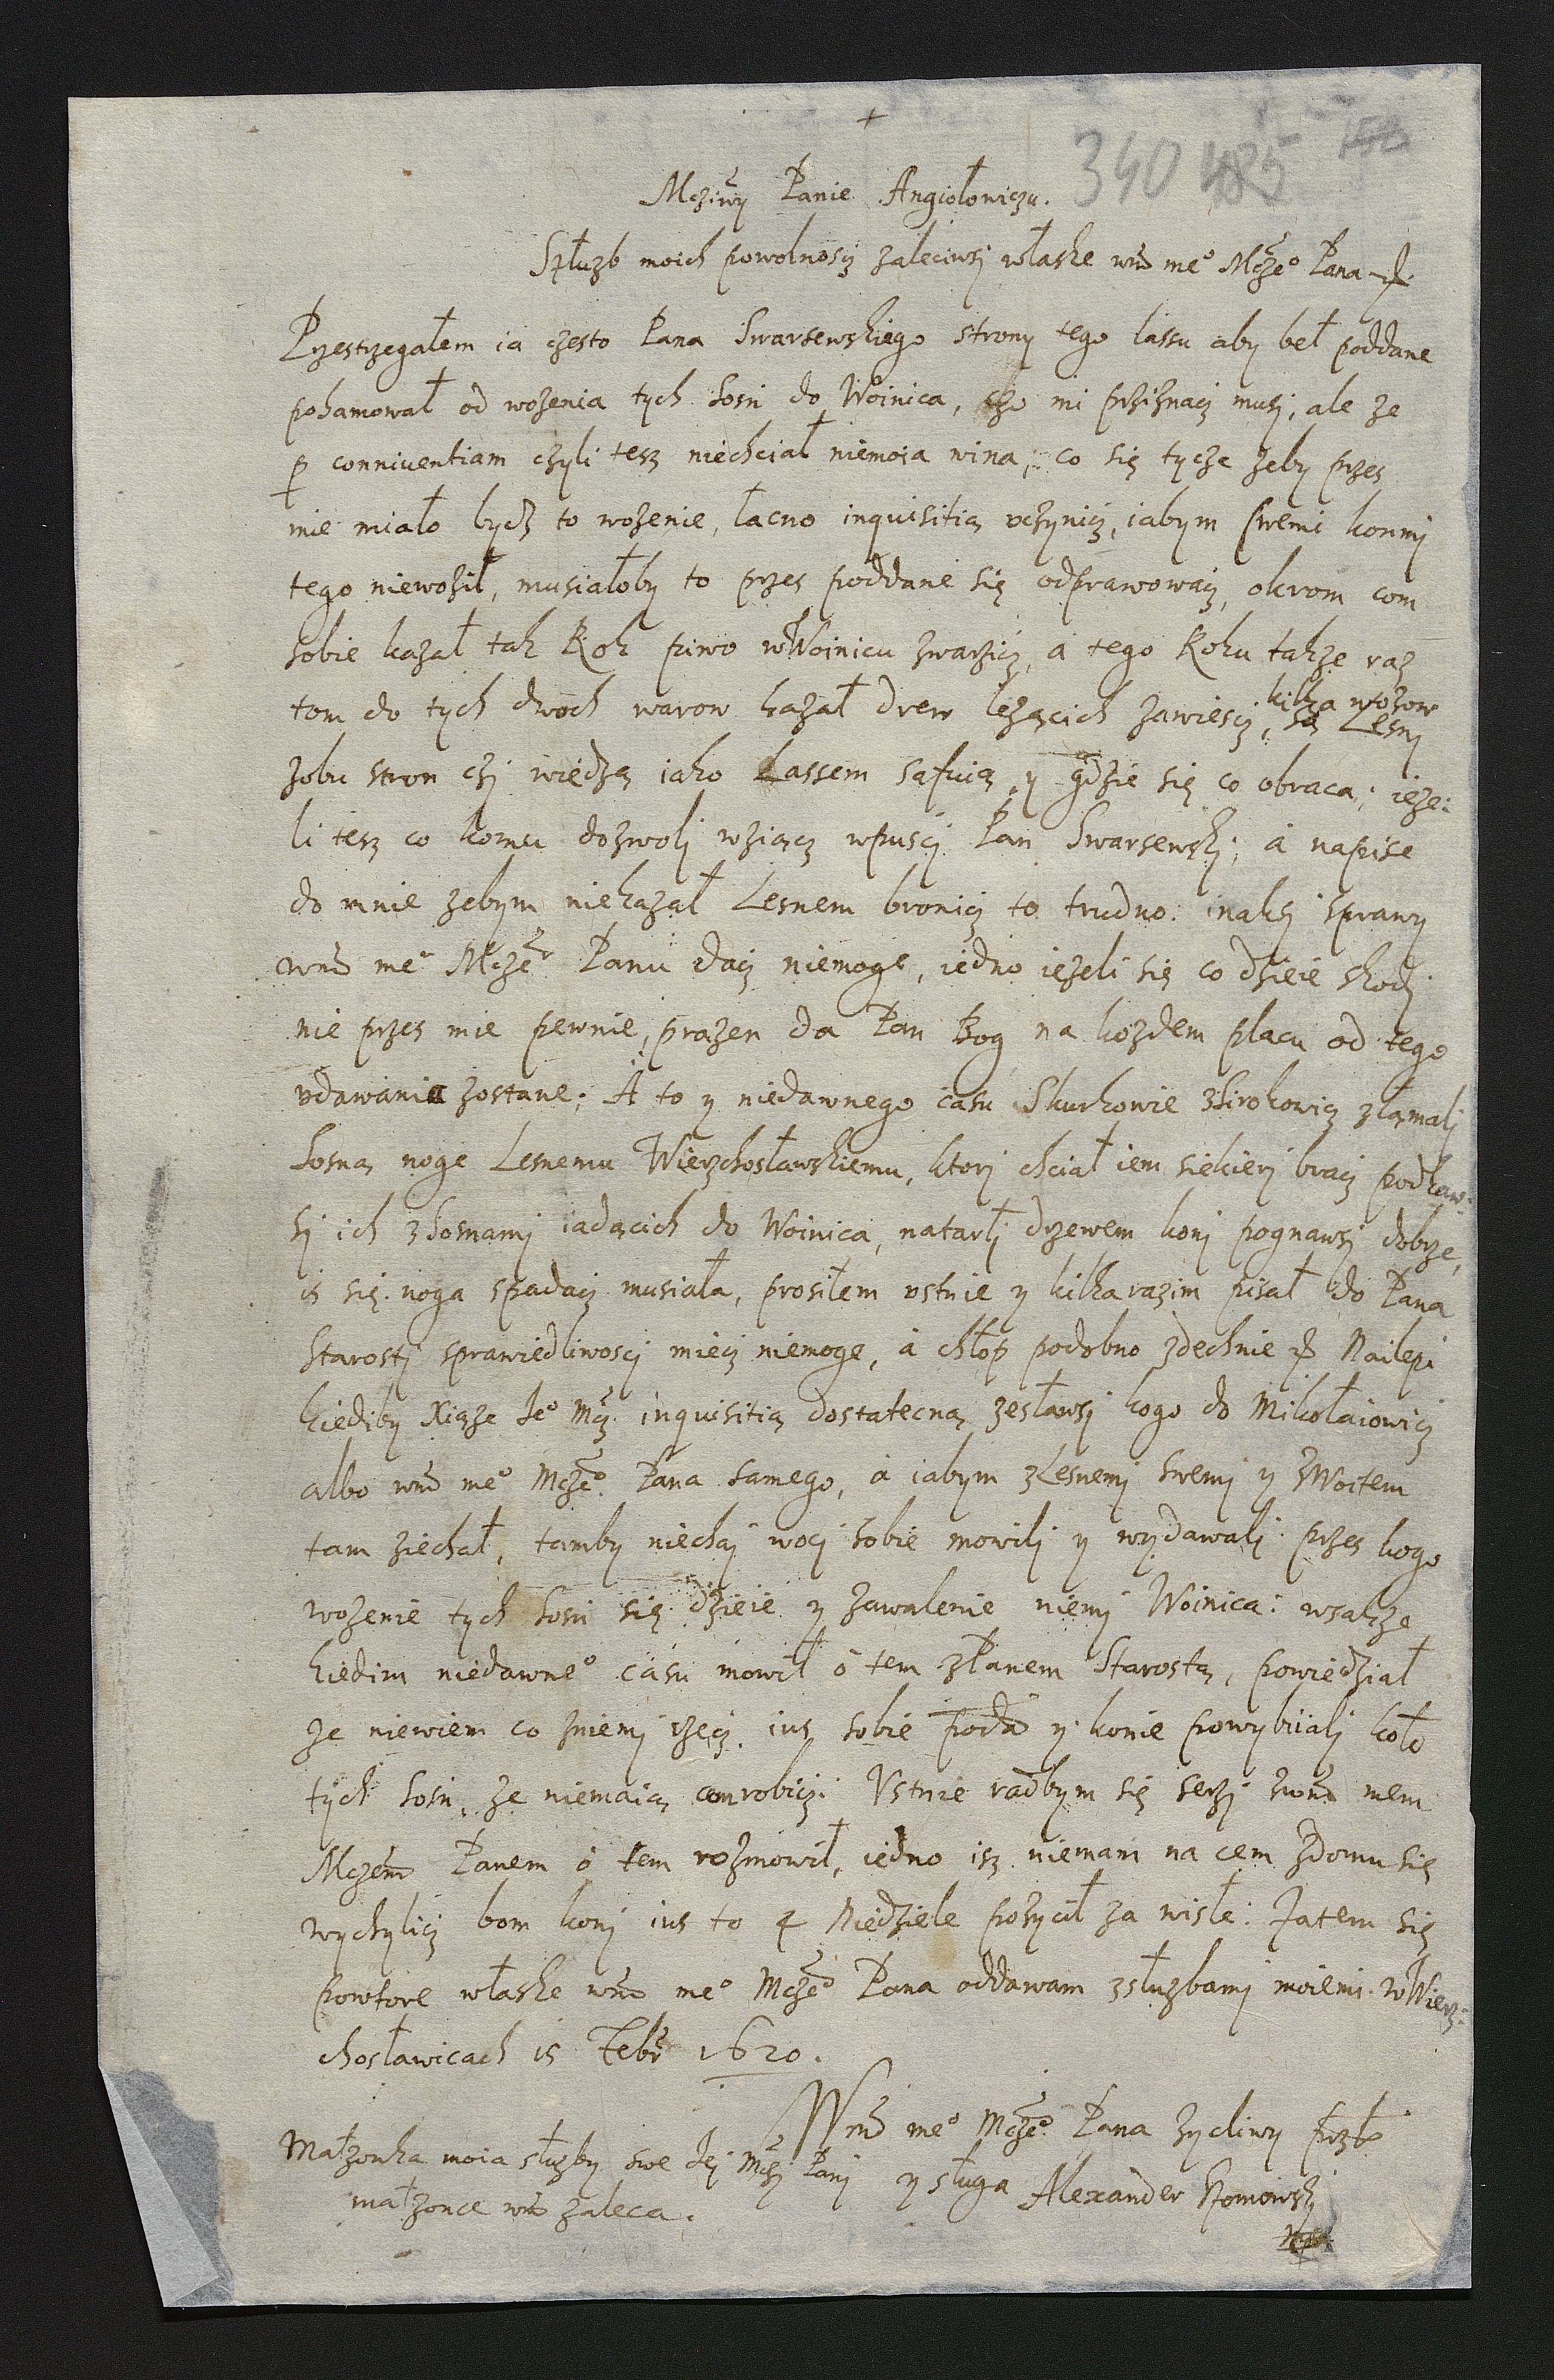 +
340 485
Mcziwy Panie Angiołowiczu.
Słuzb moich powolnoscj zaleciwsj właske wm̃ me° Mcze° Pana
Przestrzegałem ia czesto Pana Swarsewskiego strony tego lassu aby beł poddane
pohamował od wozenia tych Sosn do Woinica, czo mi prziznacz musj, ale ze
p conniuentiam czyli tesz niechciał niemoia wina; co się tycze zeby przes
mie miało bydz to wozenie, łacno inquisitią vczynicz, iabym swemi konmj
tego niewoził, musiałoby to przes poddane się odprawowacz, okrom com
sobie kazał tak Rok piwo wWoinicu zwarzicz, a tego Roku takze raz
tom do tych dwoch warow kazał drew lezącich zawiescj, kilka wozow są Lesnj
zobu stron czj wiedzą iako Lassem safuią y gdzie się co obraca; ieze:
li tesz co komu dozwolj wziącz wpuscj Pan Swarsewskj; a napise
do mnie zebym niekazał Lesnem bronicz to trudno. inaksj sprawy
wm̃ me° Mcze° Panu dacz niemoge, iedno iezeli się co dzieie skodj
nie przes mie pewnie, prazen da Pan Bog na kozdem placu od tego
vdawania zostane; A to y niedawnego casu Skurkowie zSirokowicz złamalj
Sosną noge Lesnemu Wierzchosławskiemu, ktorj chciał iem siekierj bracz podkaw:
sj ich zSosnamj iadącich do Woinica, natarlj drzewem konj pognawsj dobrze,
is się noga spadacz musiała, prosiłem vstnie y kilka razim pisał do Pana
Starostj sprawiedliwoscj miecz niemoge, a chłop podobno zdechnie Nailepi
kiediby Xiąze Je° Mcz inquisitią dostatecną zesławsj kogo do Mikołaiowicz
albo wm̃ me° Mcze° Pana samego, a iabym zLesnemj swemj y zWoitem
tam ziechał, tamby niechaj wocj sobie mowilj y wydawalj przes kogo
wozenie tych Sosn się dzieie y zawalenie niemj Woinica: wsakze
kiedim niedawne° casu mowił o tem zPanem Starostą, powiedział
ze niewiem co zniemj rzecz, ius sobie podd y konie powybiialj koło
tych Sosn, ze niemaią com robicz. Vstnie radbym się serzj zwm̃ mem
Mczem Panem o tem rozmowił, iedno isz niemam na cem zdomu się
wychylicz bom konj ius to 4 Niedziele pozycił za wisłe: Zatem się
powtore właske wm̃ me° Mcze° Pana oddawam zsłuzbamj moiemi. wWierz:
chosławicach is Febr 1620.
Wm̃ me° Mcze° Pana zycliwy
y sługa Alexander
Małzonka moia słuzby swe Jej Mczj Panj
małzonce wm̃ zaleca.